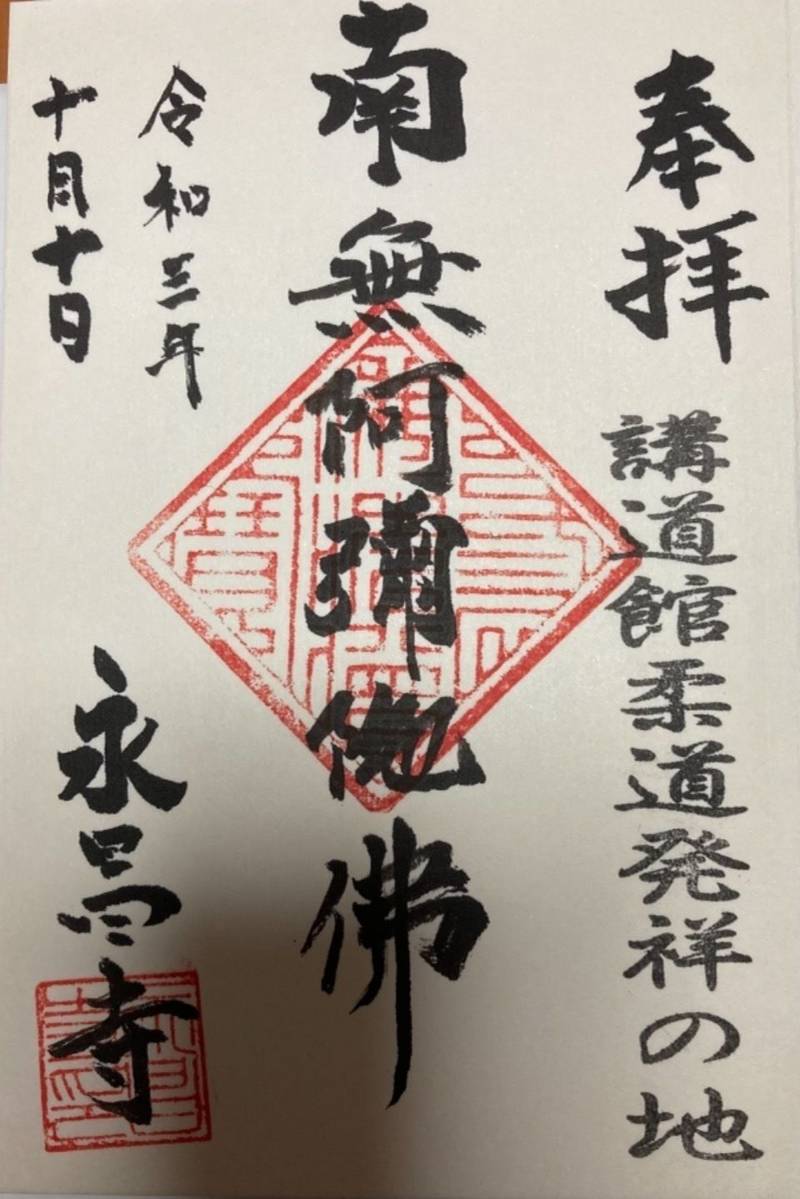 奉拝
講道館柔道発祥の地
南無阿彌陀佛
令和三年
十月十日
永昌寺